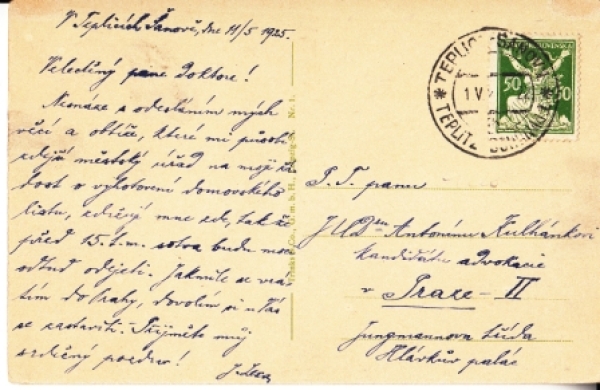 V Teplicích Šanově, dne 11/5 1925.
Velectěný pane Doktore!
Nesnáze s odesláním mých
věcí a obtíže, které mi působí
zdejší městský úřad na moji žá-
dost o vyhotovení domovského
listu, zdržely mne zde, takže
před 15. t. m. sotva budu moci
odtud odejeti. Jakmile se vra-
tím do Prahy, dovolím si u Vás
se zastaviti. Přijměte můj
srdečný pozdrav!
TEPLICE ŠANOV
TEPLITZ SCHÖNAU
50
P. T. panu
JUDru Antonínu Kulhánkovi
kandidátu advokacie
v Praze - II
Jungmannova třída
Hlávkův palác